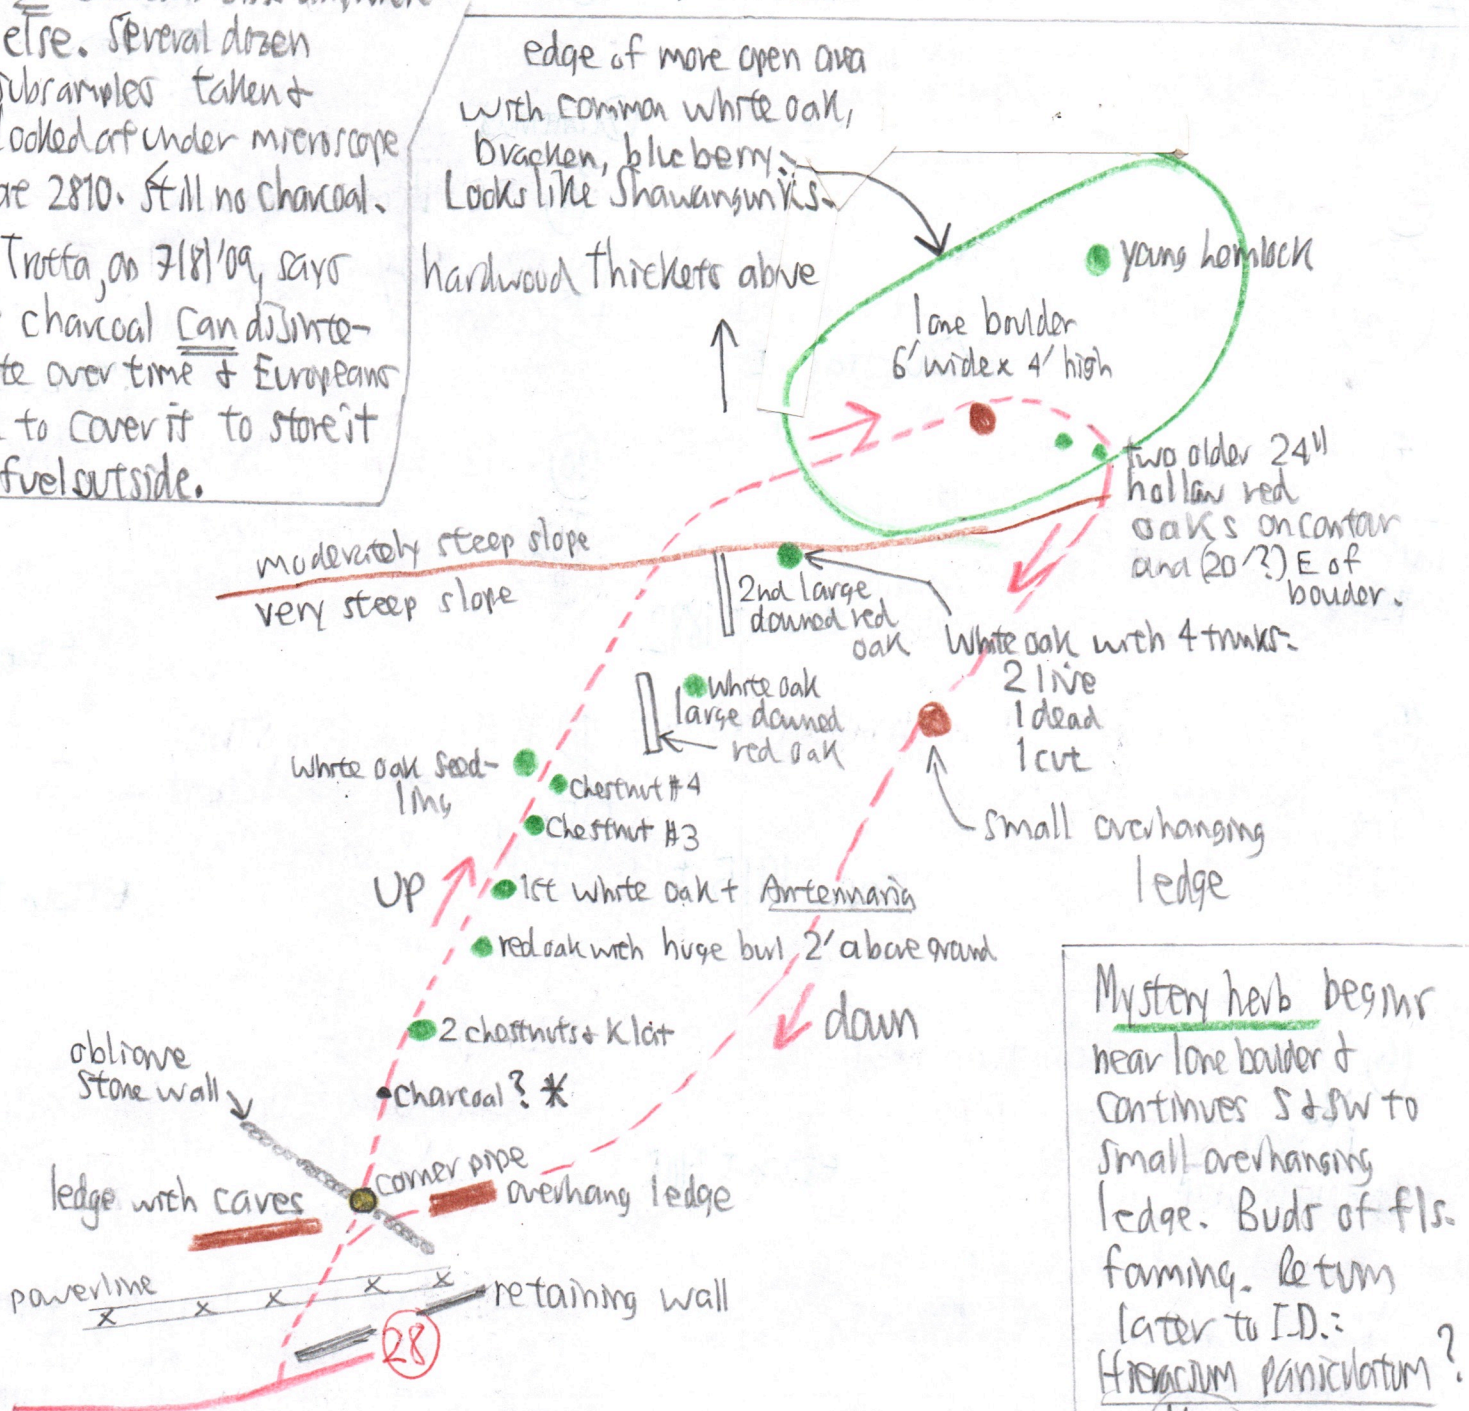 else. Several dozen
subsamples taken &
looked at under microscope
2810. Still no charcoal.
Trotta, on 7/8/'09, says
charcoal can disinte-
te over time & Europeans
to cover it to store it
fuel outside.
edge of more open area
with common white oak,
bracken, blueberry.
Looks like Shawangunks.
hardwood thickets above
young hemlock
lone boulder
6' wide x 4' high
two older 24"
hollow red
oaks on contour
and (20'?) E of
bouder.
moderately steep slope
very steep slope
2nd large
downed red
oak
White oak with 4 trunks:
2 live
1 dead
1 cut
white oak
large downed
red oak
white oak seed-
ling
chestnut #4
Chestnut #3
small overhanging
ledge
UP
1st white oak + Antennaria
red oak with huge burl 2' above ground
down
2 chestnuts & K lat
oblique
stone wall
charcoal? *
corner pipe
ledge with caves
overhang ledge
powerline
x x x x x
retaining wall
28
Mystery herb begins
near lone boulder &
continues S & SW to
small overhanging
ledge. Buds of fls.
forming. Return
later to I.D.:
Hieracium paniculatum?